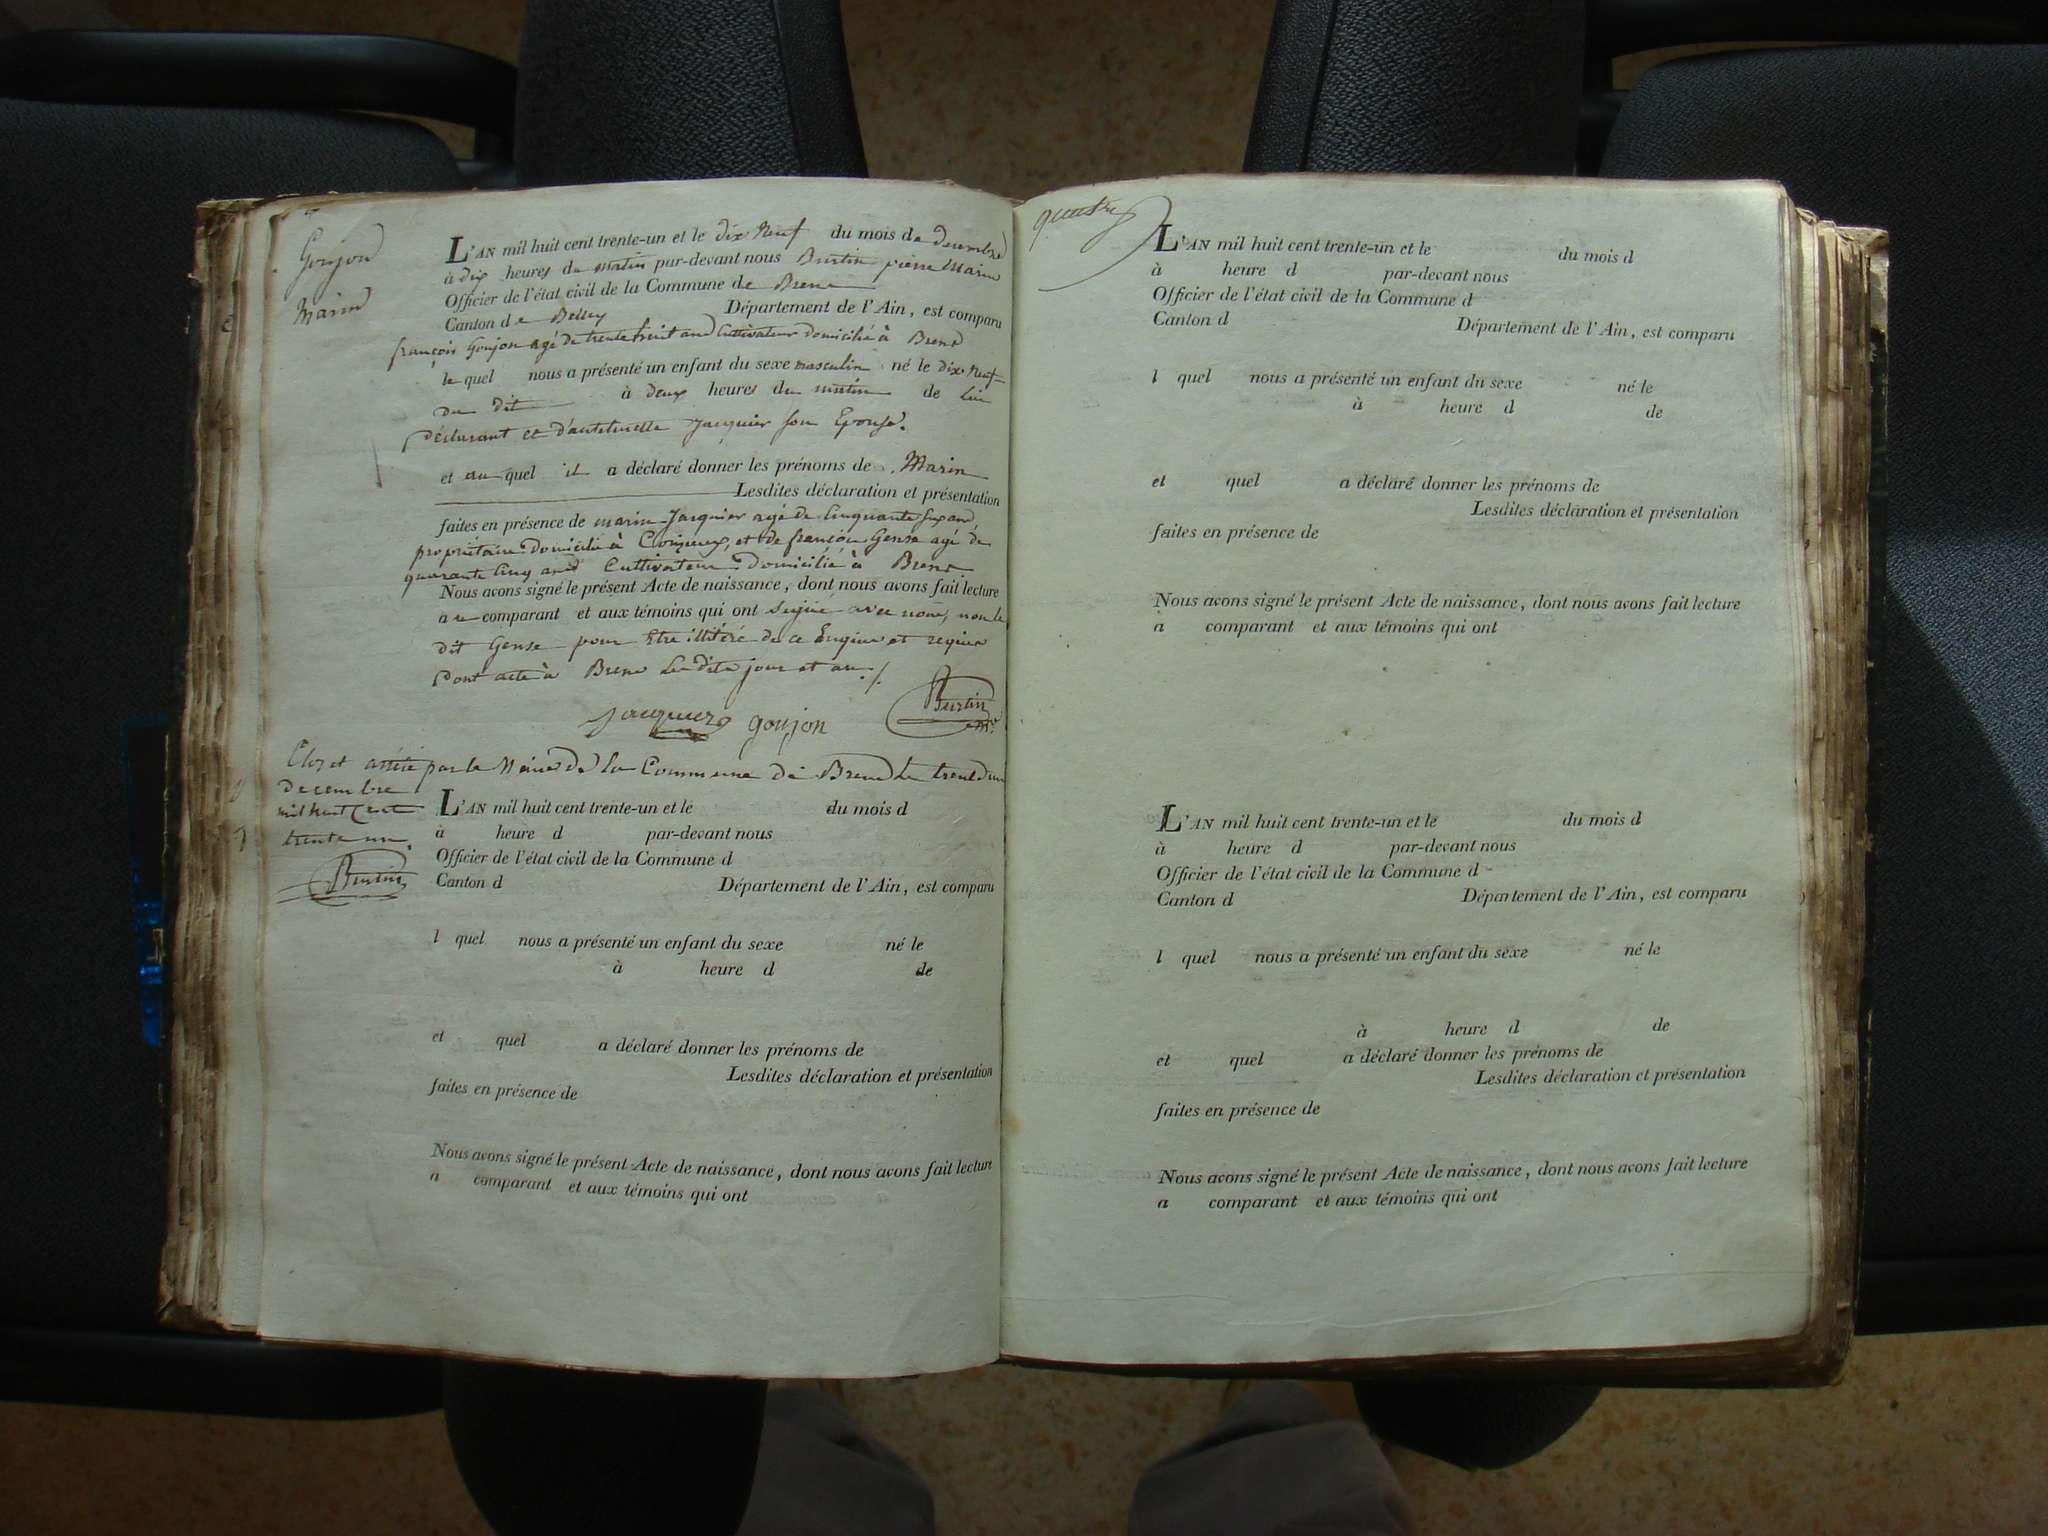 Goujon
Marin
L'AN mil huit cent trente-un et le dix neuf du mois de decembre
à dix heures du matin par-devant nous Burtin pierre Marin
Officier de l'état civil de la Commune de Brens
Canton de Belley Département de l'Ain, est comparu
françois Goujon agé de trente huit ans Cultivateur domicilié à Brens
le quel nous a présenté un enfant du sexe masculin né le dix neuf
du dit à deux heures du matin de lui
déclarant et Jacquier son Epouse.
et au quel il a déclaré donner les prénoms de Marin
Lesdites déclaration et présentation
faites en présence de marin Jacquier agé de Cinquante six ans
propriétaire domicilié à et de françois Gense agé de
quarante Cinq ans Cultivateur domicilié à Brens
Nous avons signé le présent Acte de naissance, dont nous avons fait lecture
au comparant et aux témoins qui ont signé avec nous, non le
dit Gense pour Etre illitéré de ce Enquis et requis
Dont acte à Brens Les dits jour et an ./.
Jacquier goujon Burtin
Clos et arrêté par le Maire de la Commune de Brens le trente un
decembre
mil huit Cent
trente un.
Burtin
L'AN mil huit cent trente-un et le du mois d
à heure d par-devant nous
Officier de l'état civil de la Commune d
Canton d Département de l'Ain, est comparu
l quel nous a présenté un enfant du sexe né le
à heure d de
et quel a déclaré donner les prénoms de
Lesdites déclaration et présentation
faites en présence de
Nous avons signé le présent Acte de naissance, dont nous avons fait lecture
a comparant et aux témoins qui ont
quatre
L'AN mil huit cent trente-un et le du mois d
à heure d par-devant nous
Officier de l'état civil de la Commune d
Canton d Département de l'Ain, est comparu
l quel nous a présenté un enfant du sexe né le
à heure d de
et quel a déclaré donner les prénoms de
Lesdites déclaration et présentation
faites en présence de
Nous avons signé le présent Acte de naissance, dont nous avons fait lecture
a comparant et aux témoins qui ont
L'AN mil huit cent trente-un et le du mois d
à heure d par-devant nous
Officier de l'état civil de la Commune d
Canton d Département de l'Ain, est comparu
l quel nous a présenté un enfant du sexe né le
à heure d de
et quel a déclaré donner les prénoms de
Lesdites déclaration et présentation
faites en présence de
Nous avons signé le présent Acte de naissance, dont nous avons fait lecture
a comparant et aux témoins qui ont